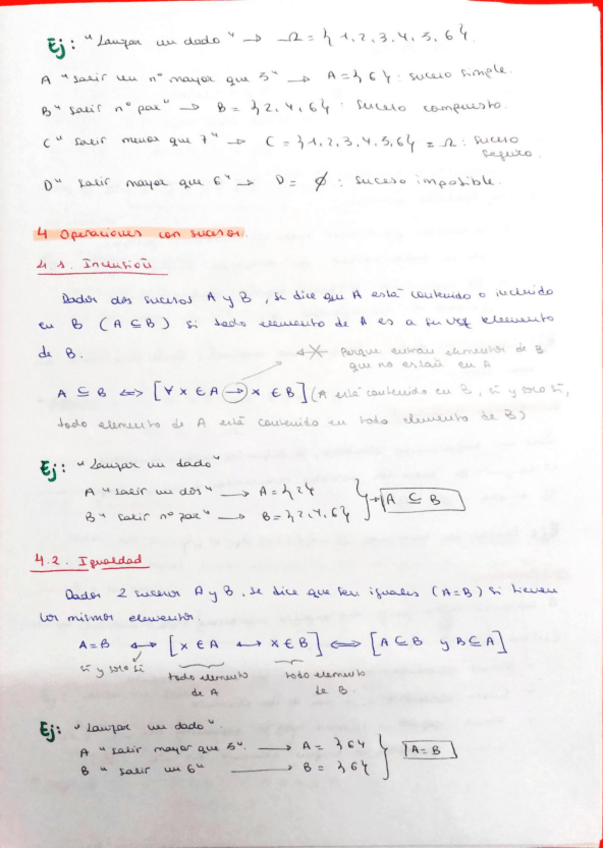 Ej: "Lanzar un dado" → Ω = {1, 2, 3, 4, 5, 6}.
A "salir un nº mayor que 5" → A = {6} : suceso simple.
B "salir nº par" → B = {2, 4, 6} : suceso compuesto.
C "salir menor que 7" → C = {1, 2, 3, 4, 5, 6} = Ω : suceso
seguro.
D "salir mayor que 6" → D = ∅ : suceso imposible.
4 Operaciones con sucesos.
4.1. Inclusión
Dados dos sucesos A y B, se dice que A está contenido o incluido
en B (A ⊆ B) si todo elemento de A es a su vez elemento
de B.
Porque entran elementos de B
que no están en A
A ⊆ B ⇔ [∀ x ∈ A → x ∈ B] (A está contenido en B, si y solo si,
todo elemento de A está contenido en todo elemento de B)
Ej: "Lanzar un dado"
A "salir un dos" → A = {2}
B "salir nº par" → B = {2, 4, 6}
A ⊆ B
4.2. Igualdad
Dados 2 sucesos A y B, se dice que son iguales (A = B) si tienen
los mismos elementos
A = B ↔ [x ∈ A ↔ x ∈ B] ⇔ [A ⊆ B y B ⊆ A]
si y solo si todo elemento todo elemento
de A de B.
Ej: "Lanzar un dado".
A "salir mayor que 5". → A = {6}
B "salir un 6" → B = {6}
A = B